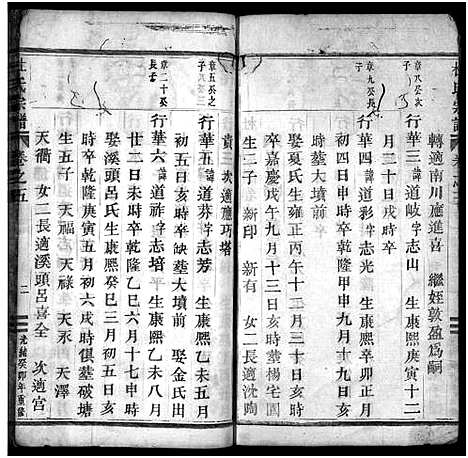 轉適南川應進喜　繼姪敦盈爲嗣
章八癸次子
行華三諱道岐字志山　生康熙庚寅十二
月三十日戌時卒
章九癸長子
行華四諱道彩字志光　生康熙辛卯正月
初四日申時卒乾隆甲申九月十九日亥
時葬大墳前
娶夏氏生雍正丙午十二月三十日亥時
卒乾隆庚子九月十三日亥時葬楊宅園
生二子　新印　新有　女二長適沈晦
貴　次適應巧塔
章五癸之子
行華五諱道芬字志芳　生康熙乙未五月
初五日亥時卒缺葬大墳前　娶金氏出
章二十癸長子
行華六諱道祚字志培　生康熙乙未八月
廿二日未時卒乾隆乙巳六月十七申時
娶溪頭呂氏生康熙癸巳三月初五日亥
時卒乾隆庚寅五月六戌時俱葬破塘
生五子　天福　天祿　天永　天澤
天衢　女二長適溪頭呂喜全　次適宫
杜氏宗譜
卷之五
二
光緒癸卯年重修